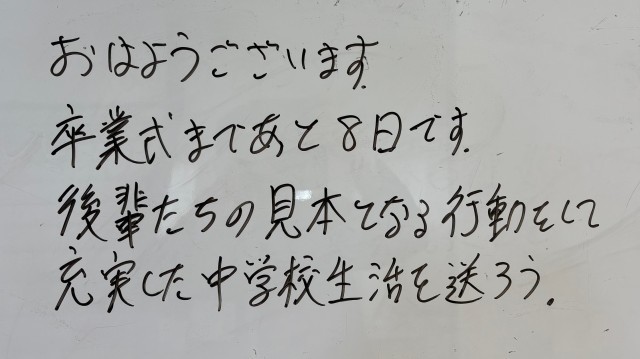 おはようございます.
卒業式まであと8日です.
後輩たちの見本となる行動をして
充実した中学校生活を送ろう.